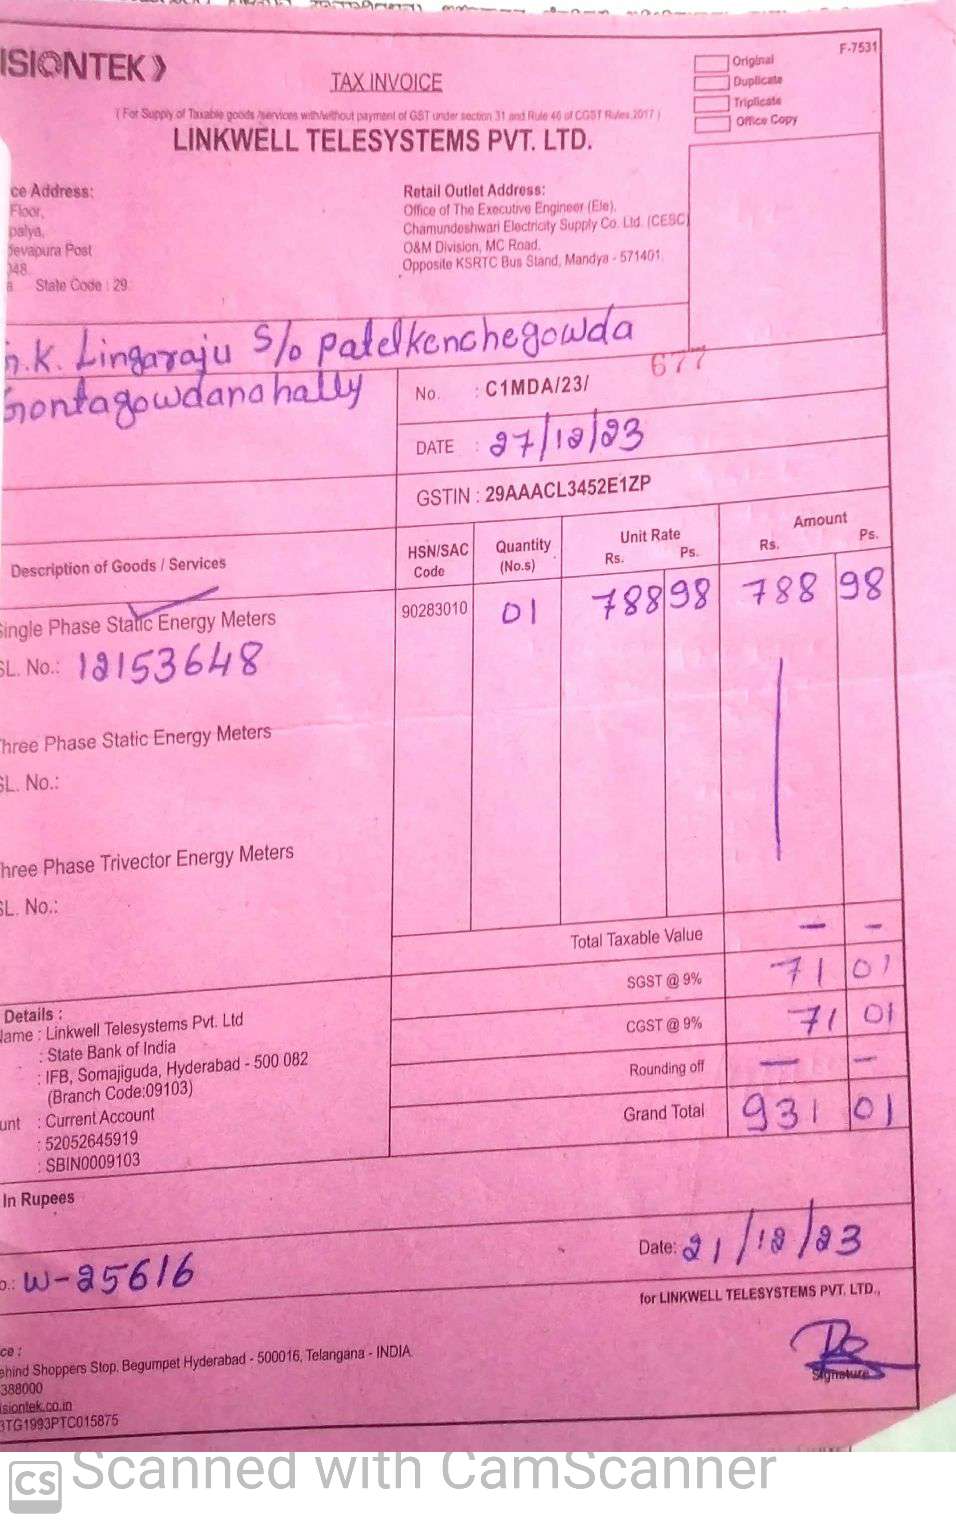 ISIONTEK
F-7531
Original
Duplicate
Triplicate
Office Copy
TAX INVOICE
( For Supply of Taxable goods /services with/without payment of GST under section 31 and Rule 46 of CGST Rules 2017 )
LINKWELL TELESYSTEMS PVT. LTD.
ce Address:
Floor,
palya,
devapura Post
048.
a State Code : 29
Retail Outlet Address:
Office of The Executive Engineer (Ele),
Chamundeshwari Electricity Supply Co. Ltd. (CESC)
O&M Division, MC Road,
Opposite KSRTC Bus Stand, Mandya - 571401.
K. Lingaraju S/o patelkenchegowda
Gontagowdanahally
No. : C1MDA/23/ 677
DATE : 27/12/23
GSTIN : 29AAACL3452E1ZP
Description of Goods / Services HSN/SAC Code Quantity (No.s) Unit Rate Rs. Ps. Amount Rs. Ps.
Single Phase Static Energy Meters 90283010 01 788 98 788 98
SL. No.: 12153648
Three Phase Static Energy Meters
SL. No.:
Three Phase Trivector Energy Meters
SL. No.:
Total Taxable Value - -
SGST @ 9% 71 01
CGST @ 9% 71 01
Rounding off - -
Grand Total 931 01
Details :
Name : Linkwell Telesystems Pvt. Ltd
: State Bank of India
: IFB, Somajiguda, Hyderabad - 500 082
(Branch Code:09103)
unt : Current Account
: 52052645919
: SBIN0009103
In Rupees
o.: W-25616
Date: 21/12/23
for LINKWELL TELESYSTEMS PVT. LTD.,
Signature
ce :
ehind Shoppers Stop, Begumpet Hyderabad - 500016, Telangana - INDIA.
388000
isiontek.co.in
3TG1993PTC015875
CS Scanned with CamScanner